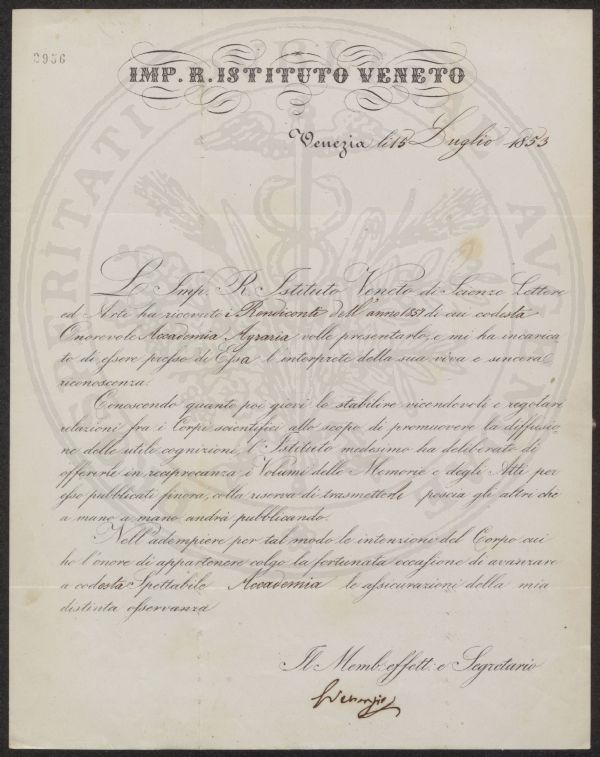 2956
IMP. R. ISTITUTO VENETO
Venezia li 15 Luglio 1853
L' Imp. R. Istituto Veneto di Scienze Lettere
ed Arti ha ricevuto i Rendiconti dell' anno 1851 di cui codesta
Onorevole Accademia Agraria volle presentarlo, e mi ha incarica
to di essere presso di Essa l' interprete della sua viva e sincera
riconoscenza.
Conoscendo quanto poi giovi lo stabilire vicendevoli e regolari
relazioni fra i Corpi scientifici allo scopo di promuovere la diffusio
ne delle utili cognizioni, l' Istituto medesimo ha deliberato di
offerirle in reciprocanza i Volumi delle Memorie e degli Atti per
esso pubblicati finora, colla riserva di trasmetterle poscia gli altri che
a mano a mano andrà pubblicando.
Nell' adempiere per tal modo le intenzioni del Corpo cui
ho l' onore di appartenere colgo la fortunata occasione di avanzare
a codesta Spettabile Accademia le assicurazioni della mia
distinta osservanza
Il Memb. effett. e Segretario